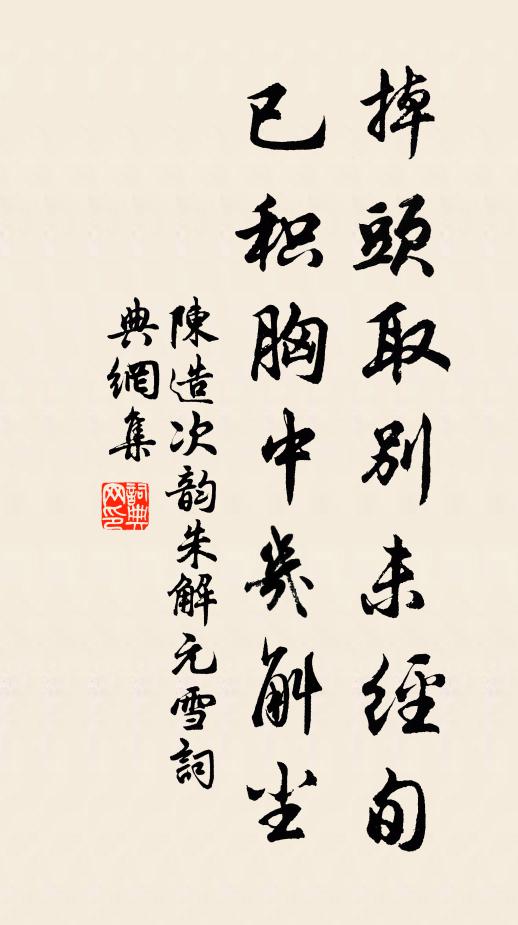 掉頭取別未經旬
已积胸中幾斛尘
陳造次韵朱解元雪詞
典網集
詞典
网印